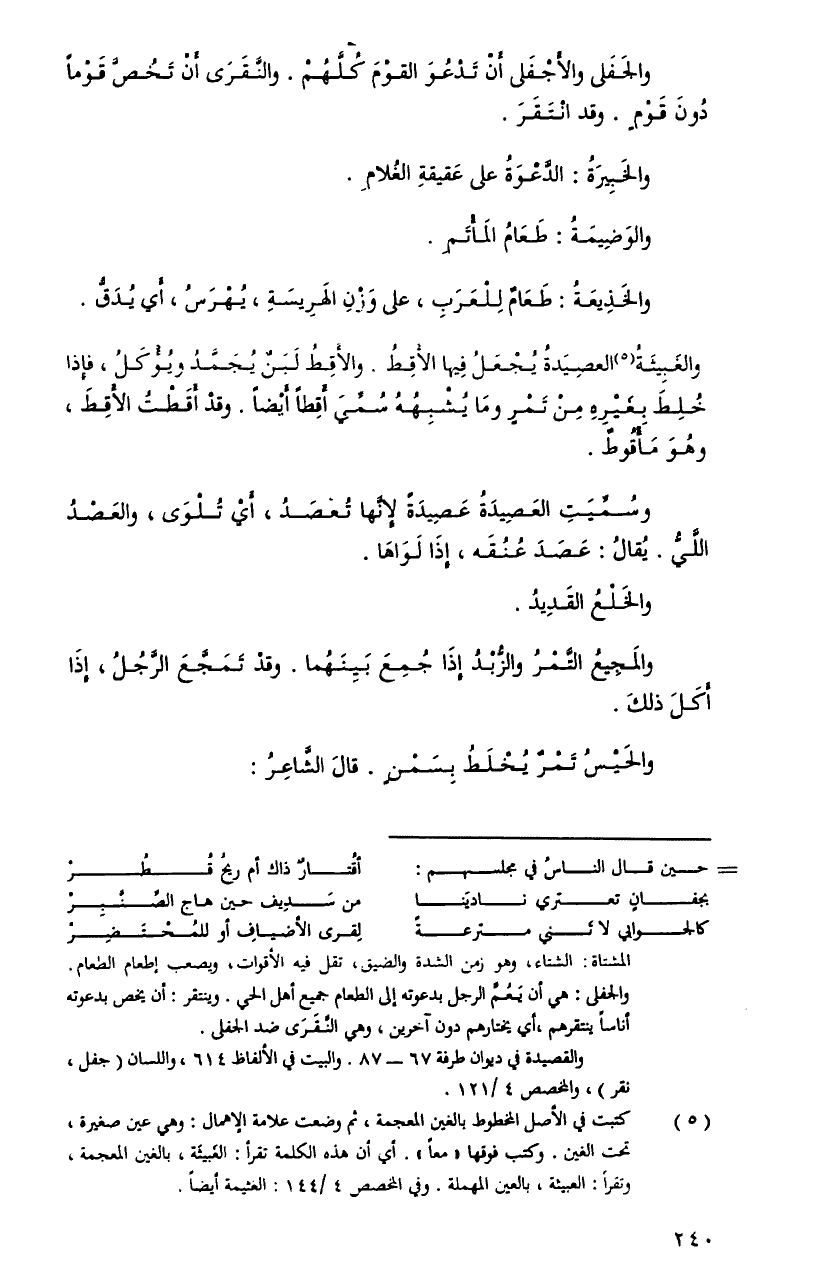 والجَفَلى والأَجْفَلى أَنْ تَدْعُوَ القوْمَ كُلَّهُمْ . والنَّقَرَى أَنْ تَخُصَّ قَوْماً
دُونَ قَوْمٍ . وقد انْتَقَرَ .
والخَبِيرَةُ : الدَّعْوَةُ على عَقيقةِ الغُلامِ .
والوَضِيمَةُ : طَعَامُ المَأْتَمِ .
والخَذِيعَةُ : طَعَامٌ لِلْعَرَبِ ، على وَزْنِ الهَرِيسَةِ ، يُهْرَسُ ، أَي يُدَقُّ .
والغَبِيثَةُ(٥) العصِيَدةُ يُجْعَلُ فِيها الأَقِطُ . والأَقِطُ لَبَنٌ يُجَمَّدُ ويُؤْكَلُ ، فإِذا
خُلِطَ بِغَيْرِهِ مِنْ تَمْرٍ ومَا يُشْبِهُهُ سُمِّيَ أَقِطاً أَيْضاً . وقدْ أَقَطْتُ الأَقِطَ ،
وهُوَ مَأْقُوطٌ .
وسُمِّيَتِ العَصِيدَةُ عَصِيدَةً لِأنَّها تُعْصَدُ ، أَيْ تُلْوَى ، والعَصْدُ
اللَّيُّ . يُقالُ : عَصَدَ عُنُقَه ، إِذَا لَوَاهَا .
والخَلْعُ القَدِيدُ .
والمَجِيعُ التَّمْرُ والزُّبْدُ إِذَا جُمِعَ بَيِنَهُما . وقدْ تَمَجَّعَ الرَّجُلُ ، إِذَا
أَكَلَ ذلكَ .
والحَيْسُ تَمْرٌ يُخْلَطُ بِسَمْنٍ . قالَ الشَّاعِرُ :
= حين قال الناسُ في مجلسهم : أَقُتارٌ ذاك أم ريحُ قُطُرْ
بجفانٍ تعتري نادينَا من سَديف حين هاج الصِّنَّبِرْ
كالجوابي لا تَني مترعةً لِقرى الأضياف أو للمُحْتَضِرْ
المشتاة : الشتاء، وهو زمن الشدة والضيق، تقل فيه الأقوات، ويصعب إطعام الطعام.
والجفلى : هي أن يَعُمَّ الرجل بدعوته إلى الطعام جميع أهل الحي . وينتقر : أن يخص بدعوته
أناساً ينتقرهم ،أي يختارهم دون آخرين ، وهي النَّقَرَى ضد الجفلى .
والقصيدة في ديوان طرفة ٦٧ – ٨٧ . والبيت في الألفاظ ٦١٤ ، واللسان ( جفل ،
نقر ) ، والمخصص ٤ /١٢١ .
( ٥ ) كتبت في الأصل المخطوط بالغين المعجمة ، ثم وضعت علامة الإهمال : وهي عين صغيرة ،
تحت الغين . وكتب فوقها « معاً » . أي أن هذه الكلمة تقرأ : الغَبيثَة ، بالغين المعجمة ،
وتقرأ : العبيثة ، بالعين المهملة . وفي المخصص ٤ /١٤٤ : الغثيمة أيضاً .
٢٤٠